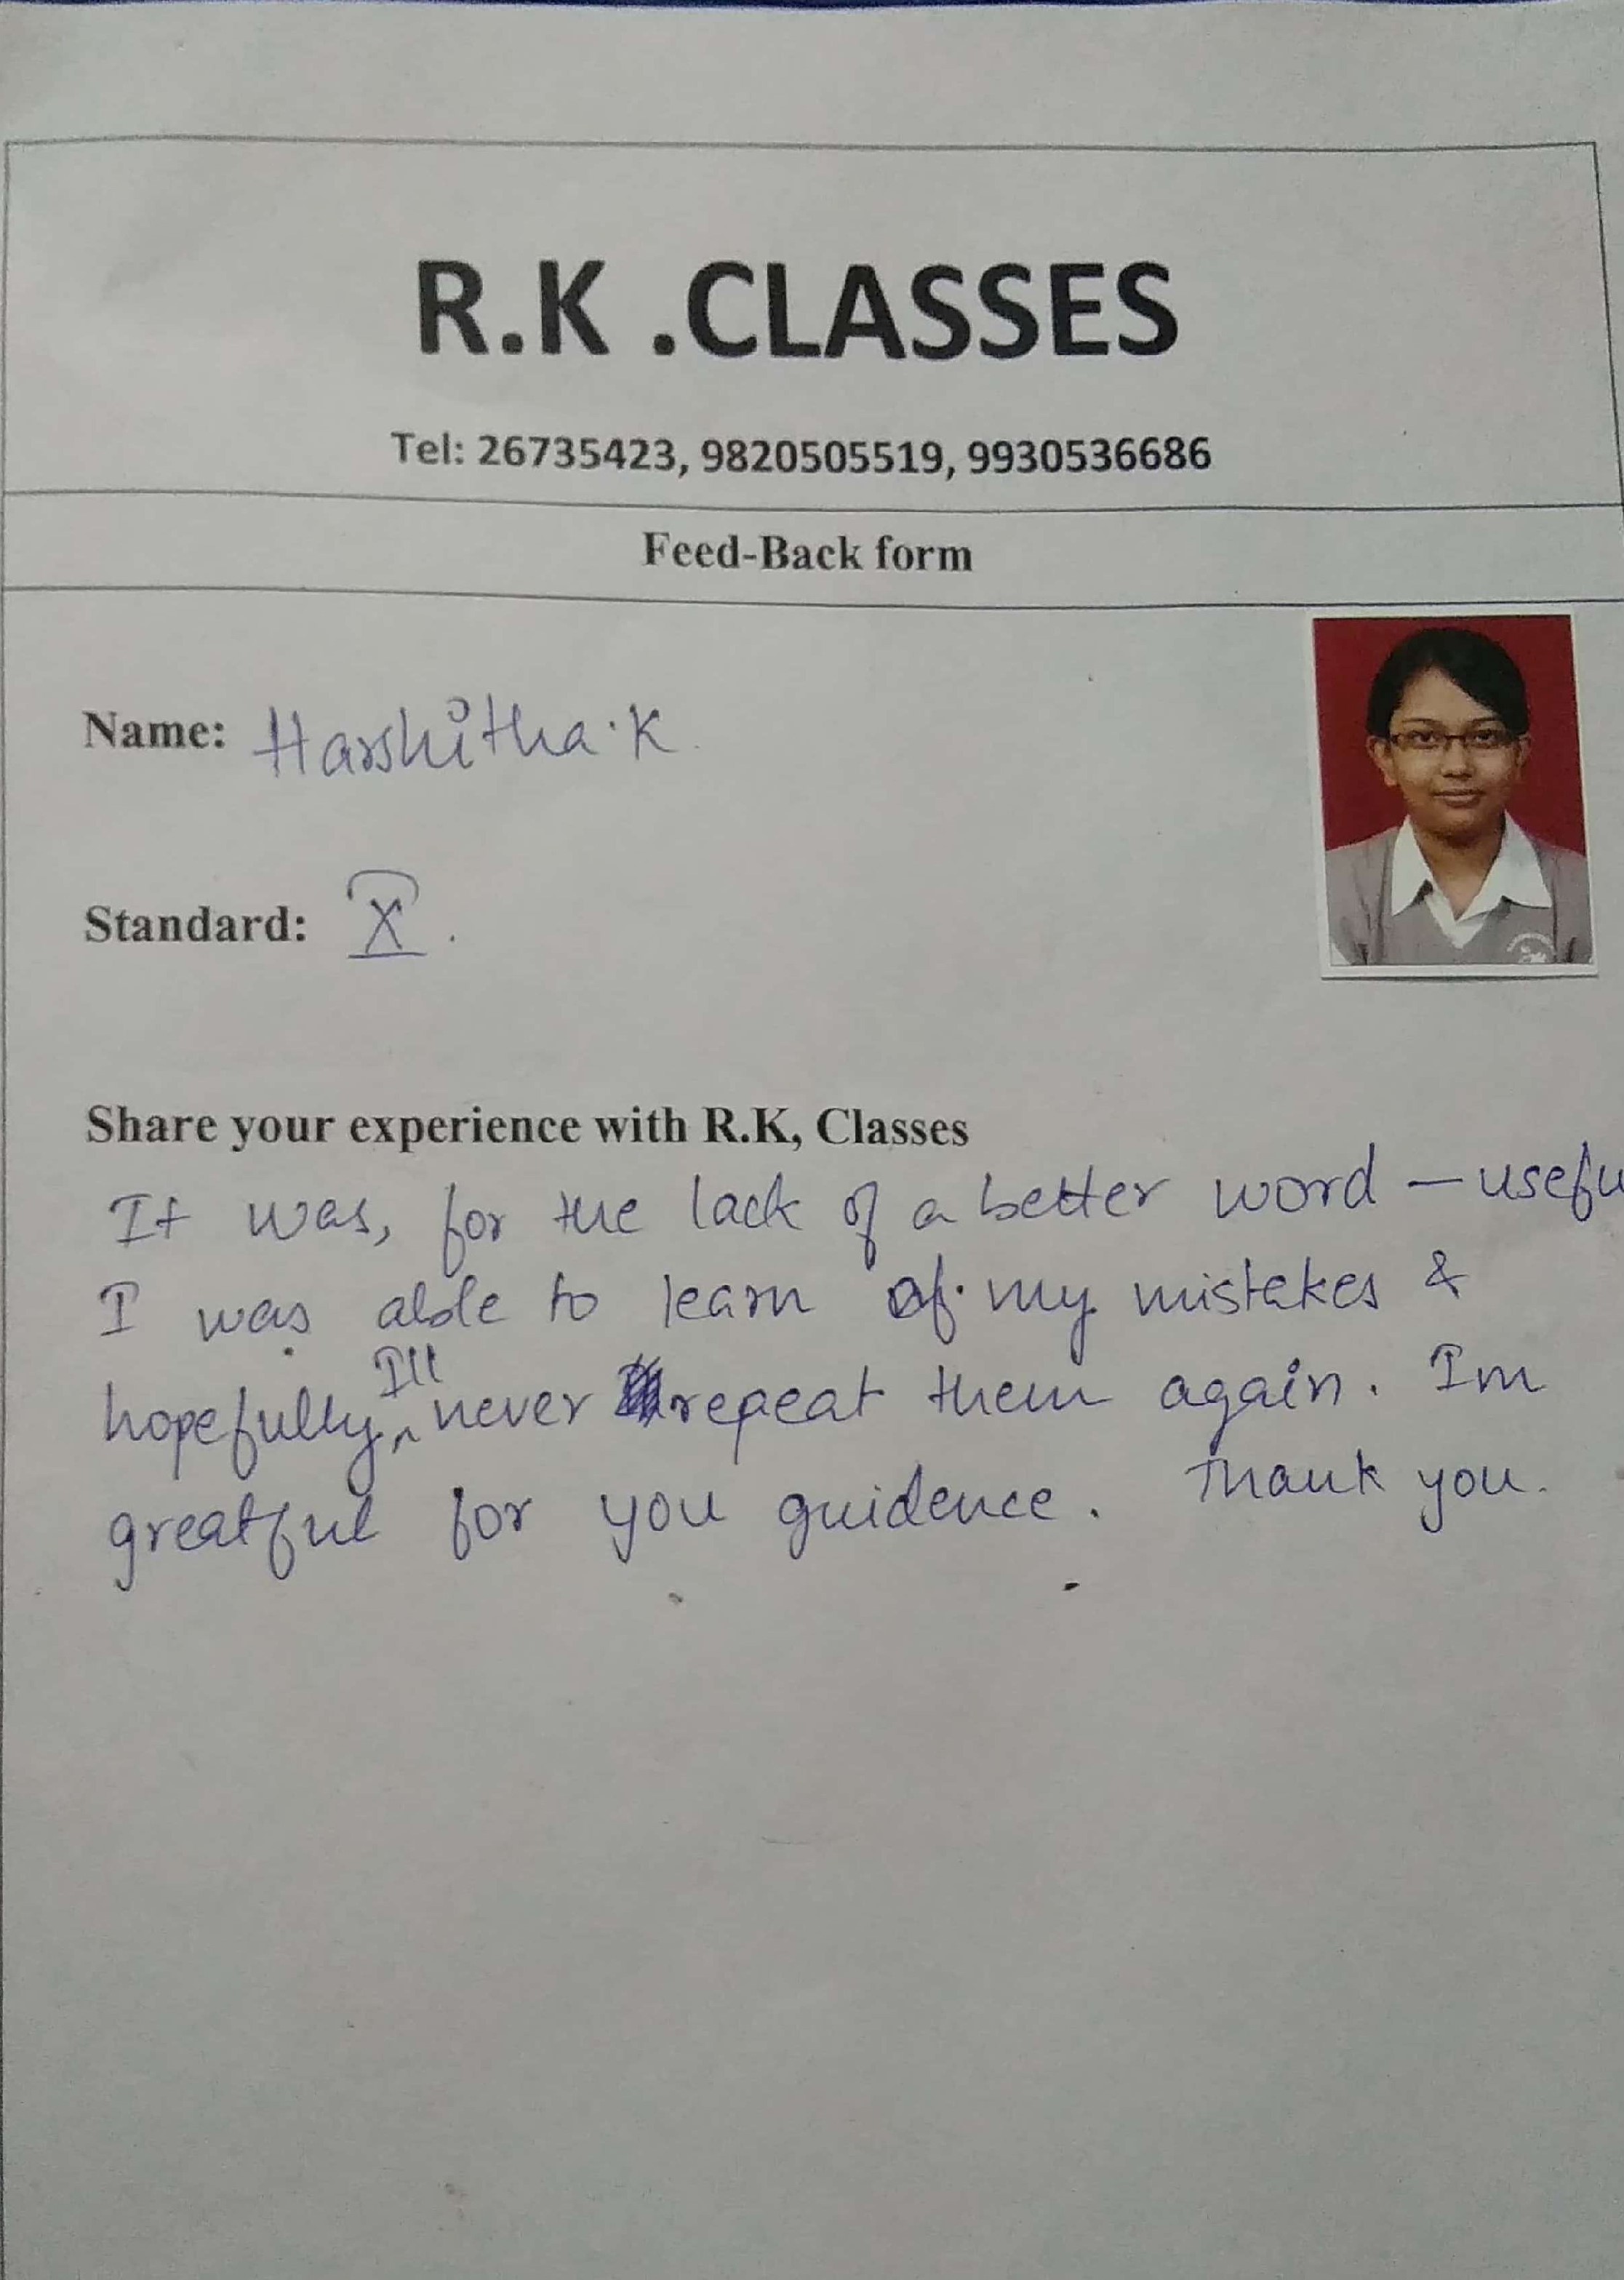 R.K .CLASSES
Tel: 26735423, 9820505519, 9930536686
Feed-Back form
Name: Harshitha.K.
Standard: X.
Share your experience with R.K, Classes
It was, for the lack of a better word — usefu
I was able to learn of my mistakes &
hopefully, I'll never repeat them again. Im
greatful for you guidence. Thank you.